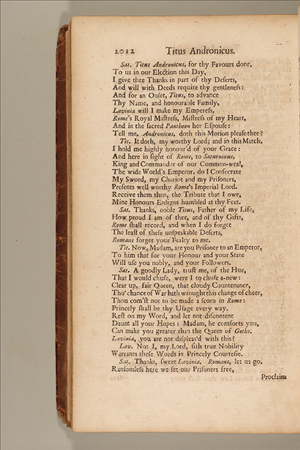 2012 Titus Andronicus.
Sat. Titus Andronicus, for thy Favours done,
To us in our Election this Day,
I give thee Thanks in part of thy Deserts,
And will with Deeds requite thy gentleness:
And for an Onset, Titus, to advance
Thy Name, and honourable Family,
Lavinia will I make my Emperess,
Rome's Royal Mistress, Mistress of my Heart,
And in the sacred Pantheon her Espouse:
Tell me, Andronicus, doth this Motion please thee?
Tit. It doth, my worthy Lord; and in this Match,
I hold me highly honour'd of your Grace:
And here in sight of Rome, to Saturninus,
King and Commander of our Common-weal,
The wide World's Emperor, do I Consecrate
My Sword, my Chariot and my Prisoners,
Presents well worthy Rome's Imperial Lord.
Receive them then, the Tribute that I owe,
Mine Honours Ensigns humbled at thy Feet.
Sat. Thanks, noble Titus, Father of my Life,
How proud I am of thee, and of thy Gifts,
Rome shall record, and when I do forget
The least of these unspeakable Deserts,
Romans forget your Fealty to me.
Tit. Now, Madam, are you Prisoner to an Emperor,
To him that for your Honour and your State
Will use you nobly, and your Followers.
Sat. A goodly Lady, trust me, of the Hue,
That I would chuse, were I to chuse a-new:
Clear up, fair Queen, that cloudy Countenance,
Tho' chance of War hath wrought this change of cheer,
Thou com'st not to be made a scorn in Rome:
Princely shall be thy Usage every way.
Rest on my Word, and let not discontent
Daunt all your Hopes: Madam, he comforts you,
Can make you greater than the Queen of Goths.
Lavinia, you are not displeas'd with this?
Lav. Not I, my Lord, sith true Nobility
Warrants these Words in Princely Courtesie.
Sat. Thanks, sweet Lavinia. Romans, let us go.
Ransomless here we set our Prisoners free,
Proclaim